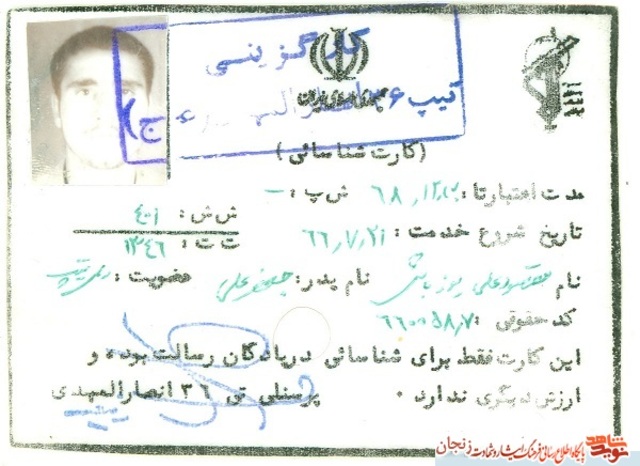 کارگزینی
تیپ ۳۶ انصارالمهدی (عج)
جمهوری اسلامی ایران
(کارت شناسائی)
مدت اعتبار تا: ۶۸,۱۲,۲ ش پ: -
ش ش: ۴۰۱
تاریخ شروع خدمت: ۶۶,۷,۲۱ ت ت: ۱۳۴۶
نام علی یوزباشی نام پدر: جعفرعلی عضویت:
کد حقوقی: ۶۶۰۰۵۸,۷
این کارت فقط برای شناسائی در پادگان رسالت بوده و
ارزش دیگری ندارد. پرسنلی تی ۳۶ انصارالمهدی
نوید شاهد
پایگاه اطلاع رسانی فرهنگ ایثار و شهادت زنجان